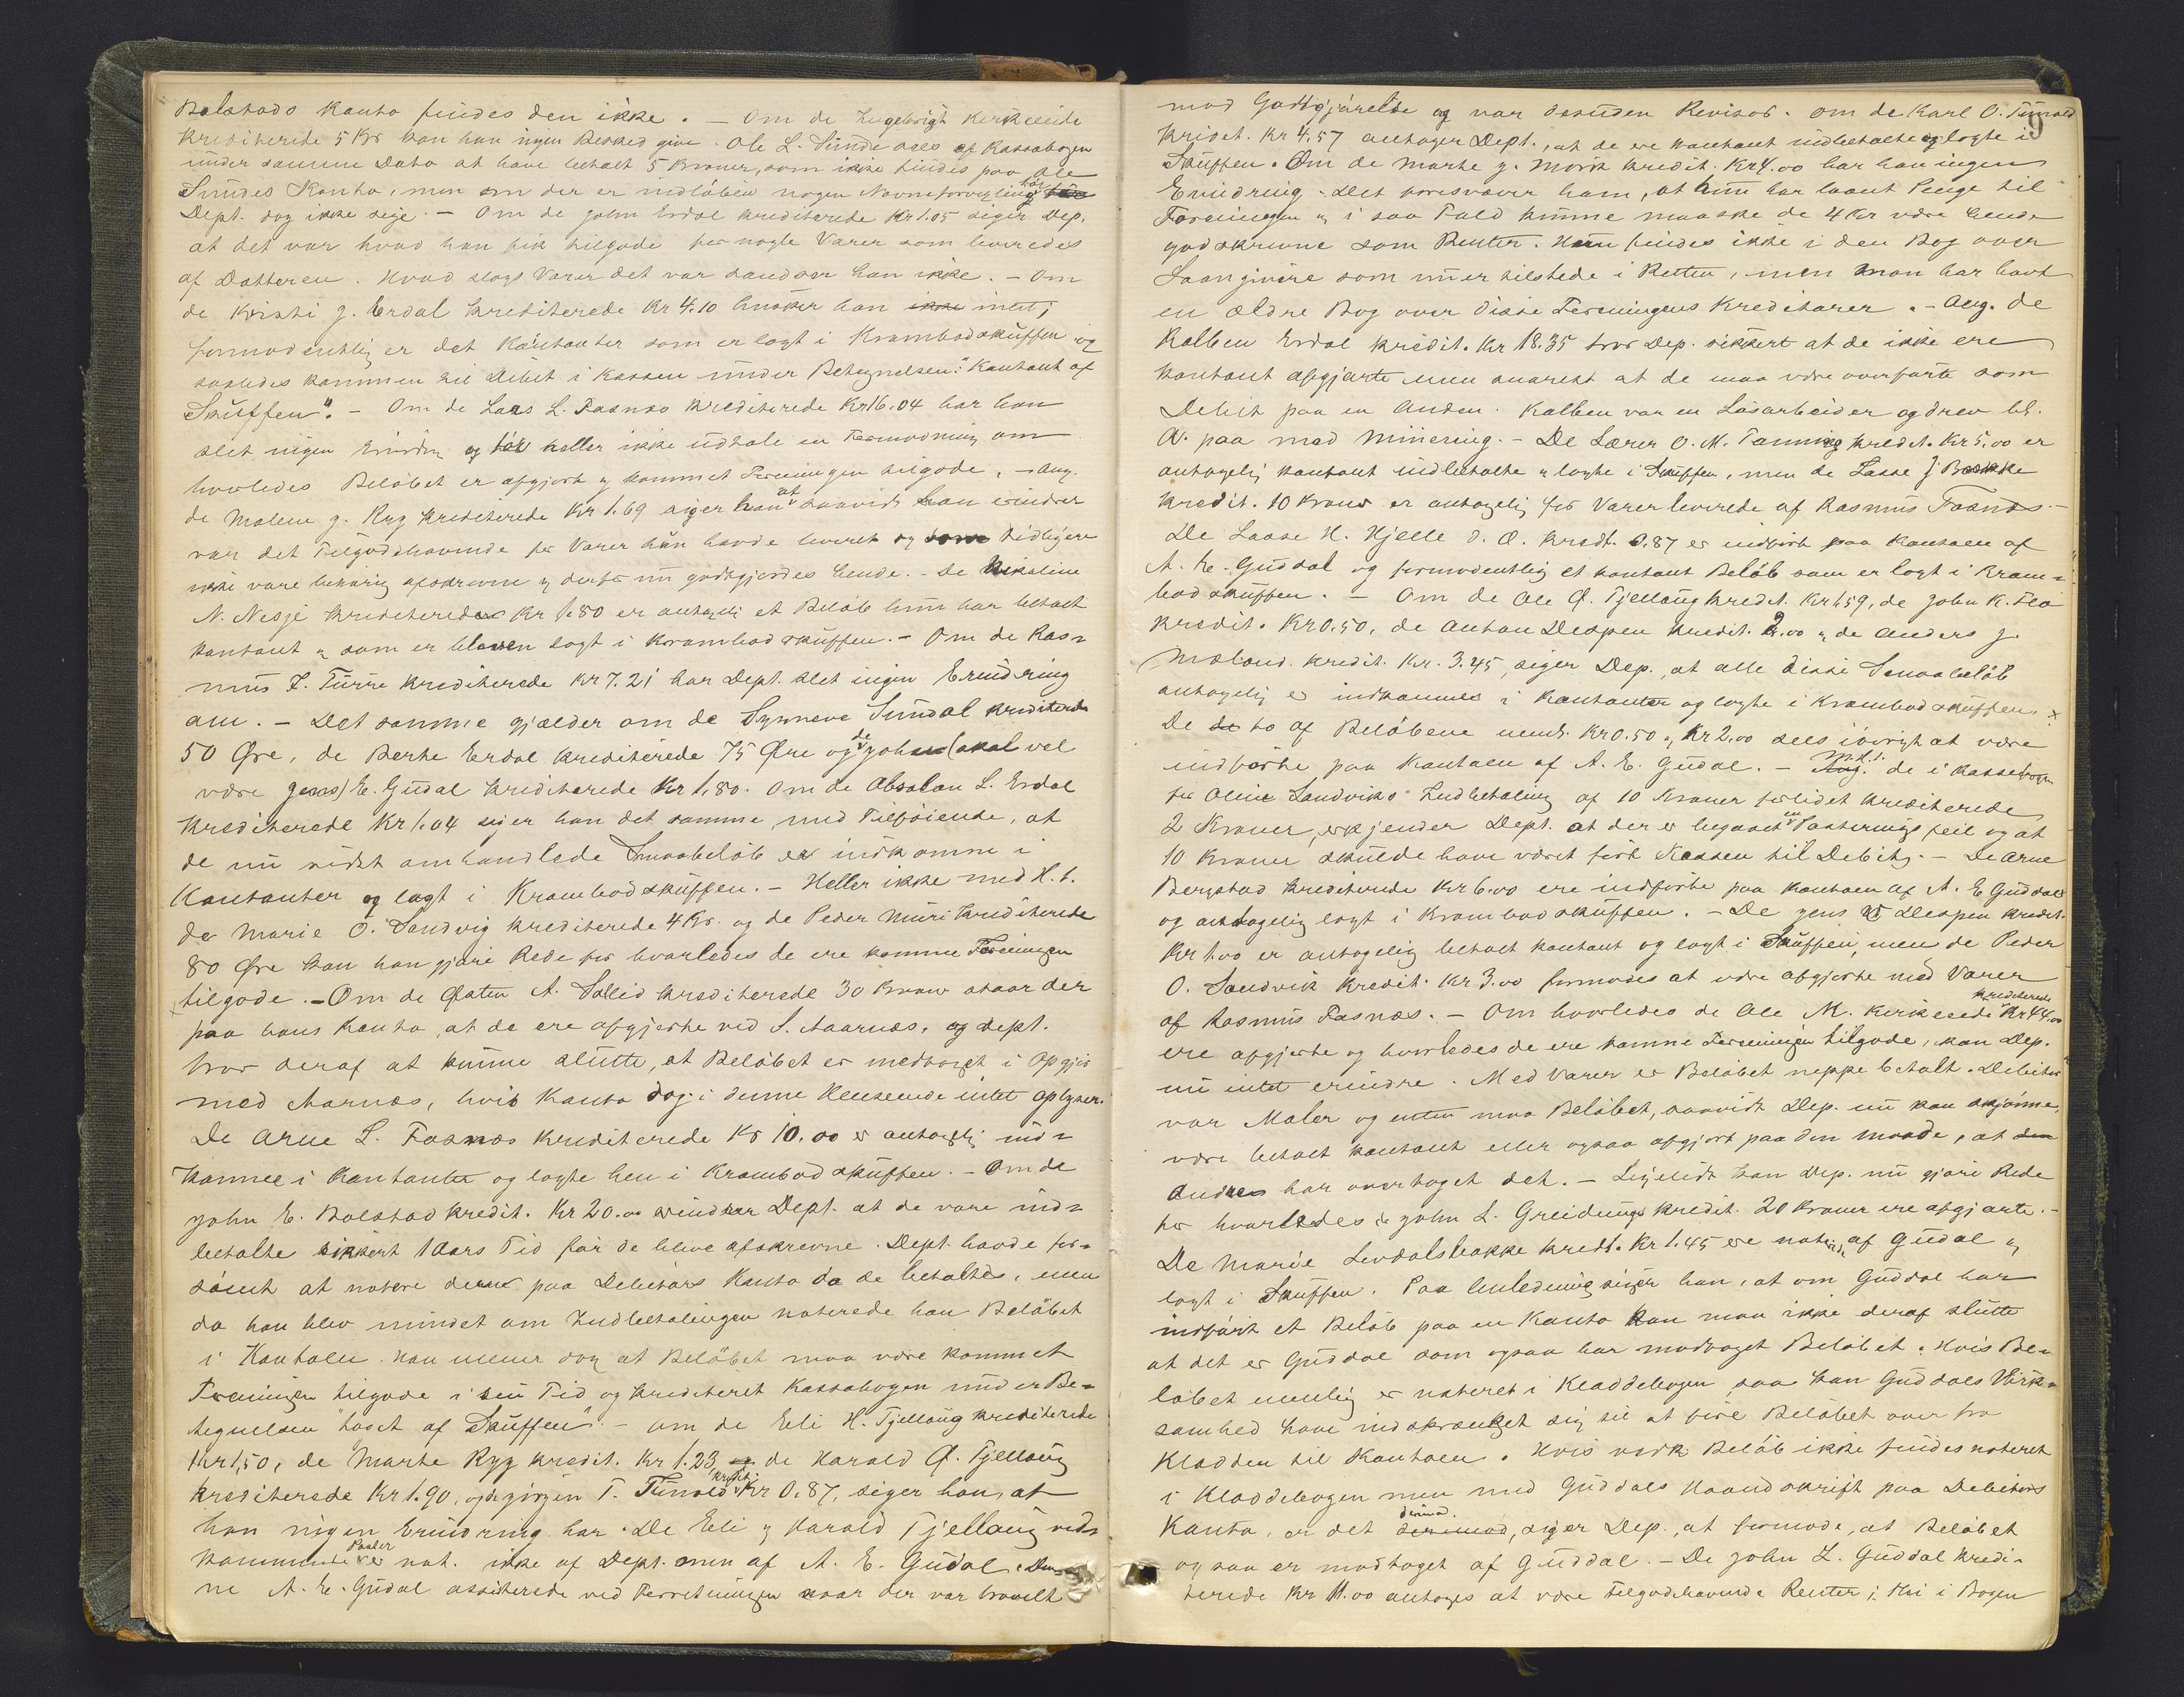 Bolstads Konto findes den ikke. — Om de Ingebrigt Kirkeeide
krediterede 5 Kr kan han ingen Besked give. Ole L. Sunde sees af Kassabogen
under samme Dato at have betalt 5 Kroner, som ikke findes paa Ole
Sundes Konto, men om der er indløben nogen Navneforvexling tør
Dept. dog ikke sige. — Om de John Erdal krediterede Kr 1.05 siger Dep.
at det var hvad han fik tilgode for nogle Varer som leveredes
af Datteren. Hvad slags Varer det var sandser han ikke. — Om
de Kristi J. Erdal krediterede Kr 4.10 husker han ikke intet;
formodentlig er det Kontanter som er lagt i Krambodskuffen og
saaledes kommen til Debet i Kassen under Betegnelsen: "Kontant af
Skuffen". — Om de Lars L. Fosnæs krediterede Kr 16.04 har han
slet ingen Erindring og tør heller ikke udtale en Formodning om
hvorledes Beløbet er afgjort og kommet Foreningen tilgode. — Ang.
de Malene J. Ryg krediterede Kr 1.69 siger han at saavidt han erindrer
var det Tilgodehavende for Varer hun havde leveret og som tidligere
ikke vare behørig afskrevne og derfor nu godtgjordes hende. — De Nikoline
N. Nesje krediterede Kr 1.80 er antagelig et Beløb hun har betalt
kontant og som er bleven lagt i Krambodskuffen. — Om de Ras-
mus J. Turre krediterede Kr 7.21 har Dept. slet ingen Erindring
om. — Det samme gjælder om de Synneve Sundal krediterede
50 Øre, de Berte Erdal krediterede 75 Øre og de John (skal vel
være Jens) E. Gudal krediterede Kr 1,80. Om de Absalon L. Erdal
krediterede Kr 1.04 siger han det samme med Tilføiende, at
de nu sidst omhandlede Smaabeløb er indkomne i
Kontanter og lagt i Krambodskuffen. — Heller ikke med H. t.
de Marie O. Sandvig krediterede 4 Kr. og de Peder Muri krediterede
80 Øre kan han gjøre Rede for hvorledes de ere komne Foreningen
tilgode. — Om de Østen A. Sollid krediterede 30 Kroner staar der
paa hans Konto, at de ere afgjorte ved S. Aarnæs, og Dept.
tror deraf at kunne slutte, at Beløbet er medtaget i Opgjør
med Aarnæs, hvis Konto dog i denne Henseende intet oplyser.
De Arne L. Fosnæs krediterede Kr 10,00 er antagelig ind-
komne i Kontanter og lagte hen i Krambodskuffen. — Om de
John E. Bolstad kredit. Kr 20.00 erindrer Dept. at de vare ind-
betalte sikkert 1 Aars Tid før de bleve afskrevne. Dept. havde for-
sømt at notere denne paa Debitors Konto da de betaltes, men
da han blev mindet om Indbetalingen noterede han Beløbet
i Kontoen. Han mener dog at Beløbet maa være kommet
Foreningen tilgode i sin Tid og krediteret Kassabogen under Be-
tegnelsen "taget af Skuffen". — Om de Eli H. Tjellaug krediterede
Kr 1,50, de Marte Ryg kredit. Kr 1.23 og de Harald O. Tjellaug
krediterede Kr 1.90, og de Jørgen T. Tunold kredit. Kr 0.87, siger han, at
han ingen Erindring har. De Eli og Harald Tjellaug ved-
kommende Poster er not. ikke af Dept. men af A. E. Gudal. Den-
ne A. E. Gudal assisterede ved Forretningen naar der var travelt
9
mod Godtgjørelse og var desuden Revisor. Om de Karl O. Tunold
kridet. Kr 4.57 antager Dept., at de ere kontant indbetalte og lagte i
Skuffen. Om de Marte J. Mork kredit. Kr 4.00 har han ingen
Erindring. Det foresvæver ham, at hun har laant Penge til
Foreningen og i saa Fald kunne maaske de 4 Kr være hende
godskrevne som Renter. Hun findes ikke i den Bog over
Laangivere som nu er tilstede i Retten, men man har havt
en ældre Bog over disse Foreningens Kreditorer. — Ang. de
Kolben Erdal kredit. Kr 18.35 tror Dep. sikkert at de ikke ere
kontant afgjorte men snarest at de maa være overførte som
Debit paa en Anden. Kolben var en Løsarbeider og drev bl.
A. paa med Minering. — De Lærer O. M. Tanning kredit. Kr 5.00 er
antagelig kontant indbetalte og lagte i Skuffen, men de Lasse J Bakke
kredit. 10 Kroner er antagelig for Varer leverede af Rasmus Fosnæs. —
De Lasse H. Hjelle d. O. kredt. 0.87 er indført paa Kontoen af
A. E. Guddal og formodentlig et kontant Beløb som er lagt i Kram-
bodskuffen. — Om de Ole O. Tjellaug kredit. Kr 1.59, de John K. Flo
kredit. Kr 0.50, de Anton Despen kredit. 2.00 og de Anders J.
Moland kredit. Kr. 3.45, siger Dep., at alle disse Smaabeløb
antagelig er indkomne i Kontanter og lagte i Krambodskuffen. x
De de to af Beløbene neml. Kr 0.50 og Kr 2.00 sees iøvrigt at være
indførte paa Kontoen af A. E. Gudal. — Ang. m.H.t. de i Kassebogen
for Oline Sandviks Indbetaling af 10 Kroner forlidet krediterede
2 Kroner, erkjender Dept. at der er begaaet en Posteringsfeil og at
10 Kroner skulde have været ført Kassen til Debet. — De Arne
Bergstad krediterede Kr 6.00 ere indførte paa Kontoen af A. E. Guddal
og antagelig lagt i Krambodskuffen. — De Jens Despen kredit.
Kr 1.00 er antagelig betalt kontant og lagt i Skuffen, men de Peder
O. Sandvik kredit. Kr 3.00 formodes at være afgjorte med Varer
af Rasmus Fosnæs. — Om hvorledes de Ole M. Kirkeeide krediterede Kr 44.00
ere afgjorte og hvorledes de ere komne Foreningen tilgode, kan Dep.
nu intet erindre. Med Varer er Beløbet neppe betalt. Debitor
var Maler og enten maa Beløbet, saavidt Dep. nu kan skjønne,
være betalt kontant eller ogsaa afgjort paa den Maade, at den
Anden har overtaget det. — Ligelidt kan Dep. nu gjøre Rede
for hvorledes de John L. Greidung kredit. 20 Kroner ere afgjorte. —
De Marie Levdalsbakke kredt. Kr 1.45 ere noterede af Gudal og
lagt i Skuffen. Paa Anledning siger han, at om Guddal har
indført et Beløb paa en Konto kan man ikke deraf slutte
at det er Guddal som ogsaa har modtaget Beløbet. Hvis Be-
løbet nemlig er noteret i Kladdebogen saa kan Guddals Virk-
somhed have indskrænket sig til at føre Beløbet over fra
Kladden til Kontoen. Hvis vedk. Beløb ikke findes noteret
i Kladdebogen men med Guddals Haandskrift paa Debitors
Konto, er det derimod, siger Dep., at formode, at Beløbet
ogsaa er modtaget af Guddal. — De John L. Guddal kredi-
terede Kr 11.00 antages at være Tilgodehavende Renter; thi i Bogen